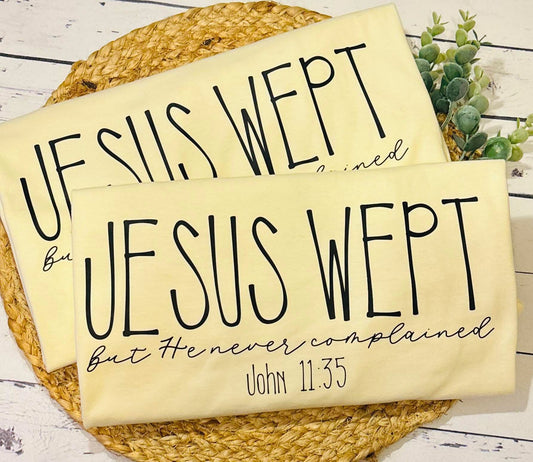 JESUS WEPT
Bu complained
JESUS WEPT
But He never complained
John 11:35